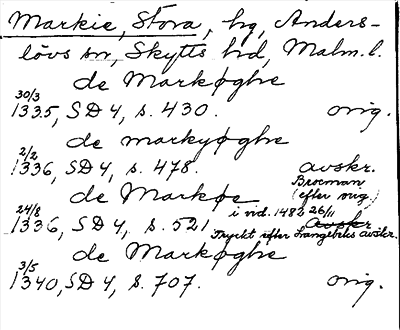 Markie, Stora, hg, Anders-
lövs sn, Skytts hd, Malm. l.
de Markøghe
30/3
1335, SD 4, s. 430. orig.
de markyøghe
2/2
1336, SD 4, s. 478. avskr.
Brocman
(efter orig.)
de Markøe
i vid. 1482 26/11
24/8
1336, SD 4, s. 521 Avskr
Tryckt efter Langebeks avskr.
de Markøghe
3/5
1340, SD 4, s. 707. orig.